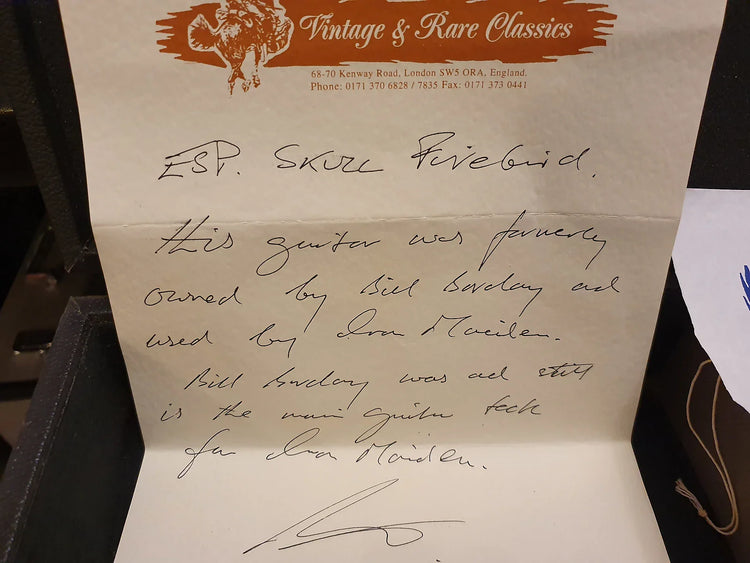 Vintage & Rare Classics
68-70 Kenway Road, London SW5 ORA, England.
Phone: 0171 370 6828 / 7835 Fax: 0171 373 0441
ESP. SKULL Firebird.
this guitar was formerly
owned by Bill Barclay and
used by Iron Maiden.
Bill Barclay was and still
is the main guitar tech
for Iron Maiden.